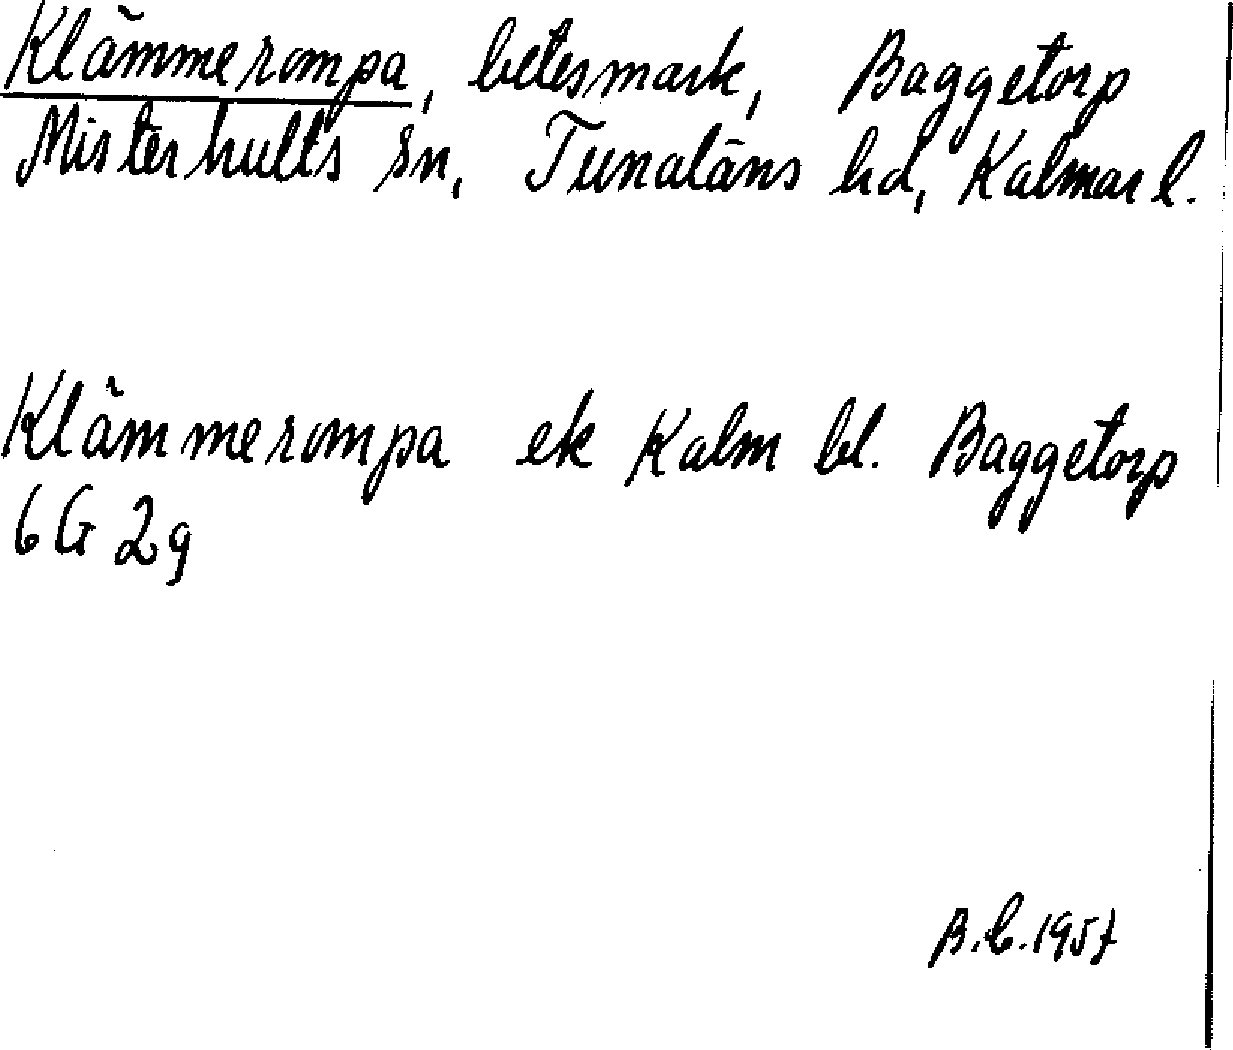 Klämmerompa, betesmark, Baggetorp
Misterhults sn, Tunaläns hd, Kalmar l.
Klämmerompa ek Kalm bl. Baggetorp
6G 2g
B.C. 1957